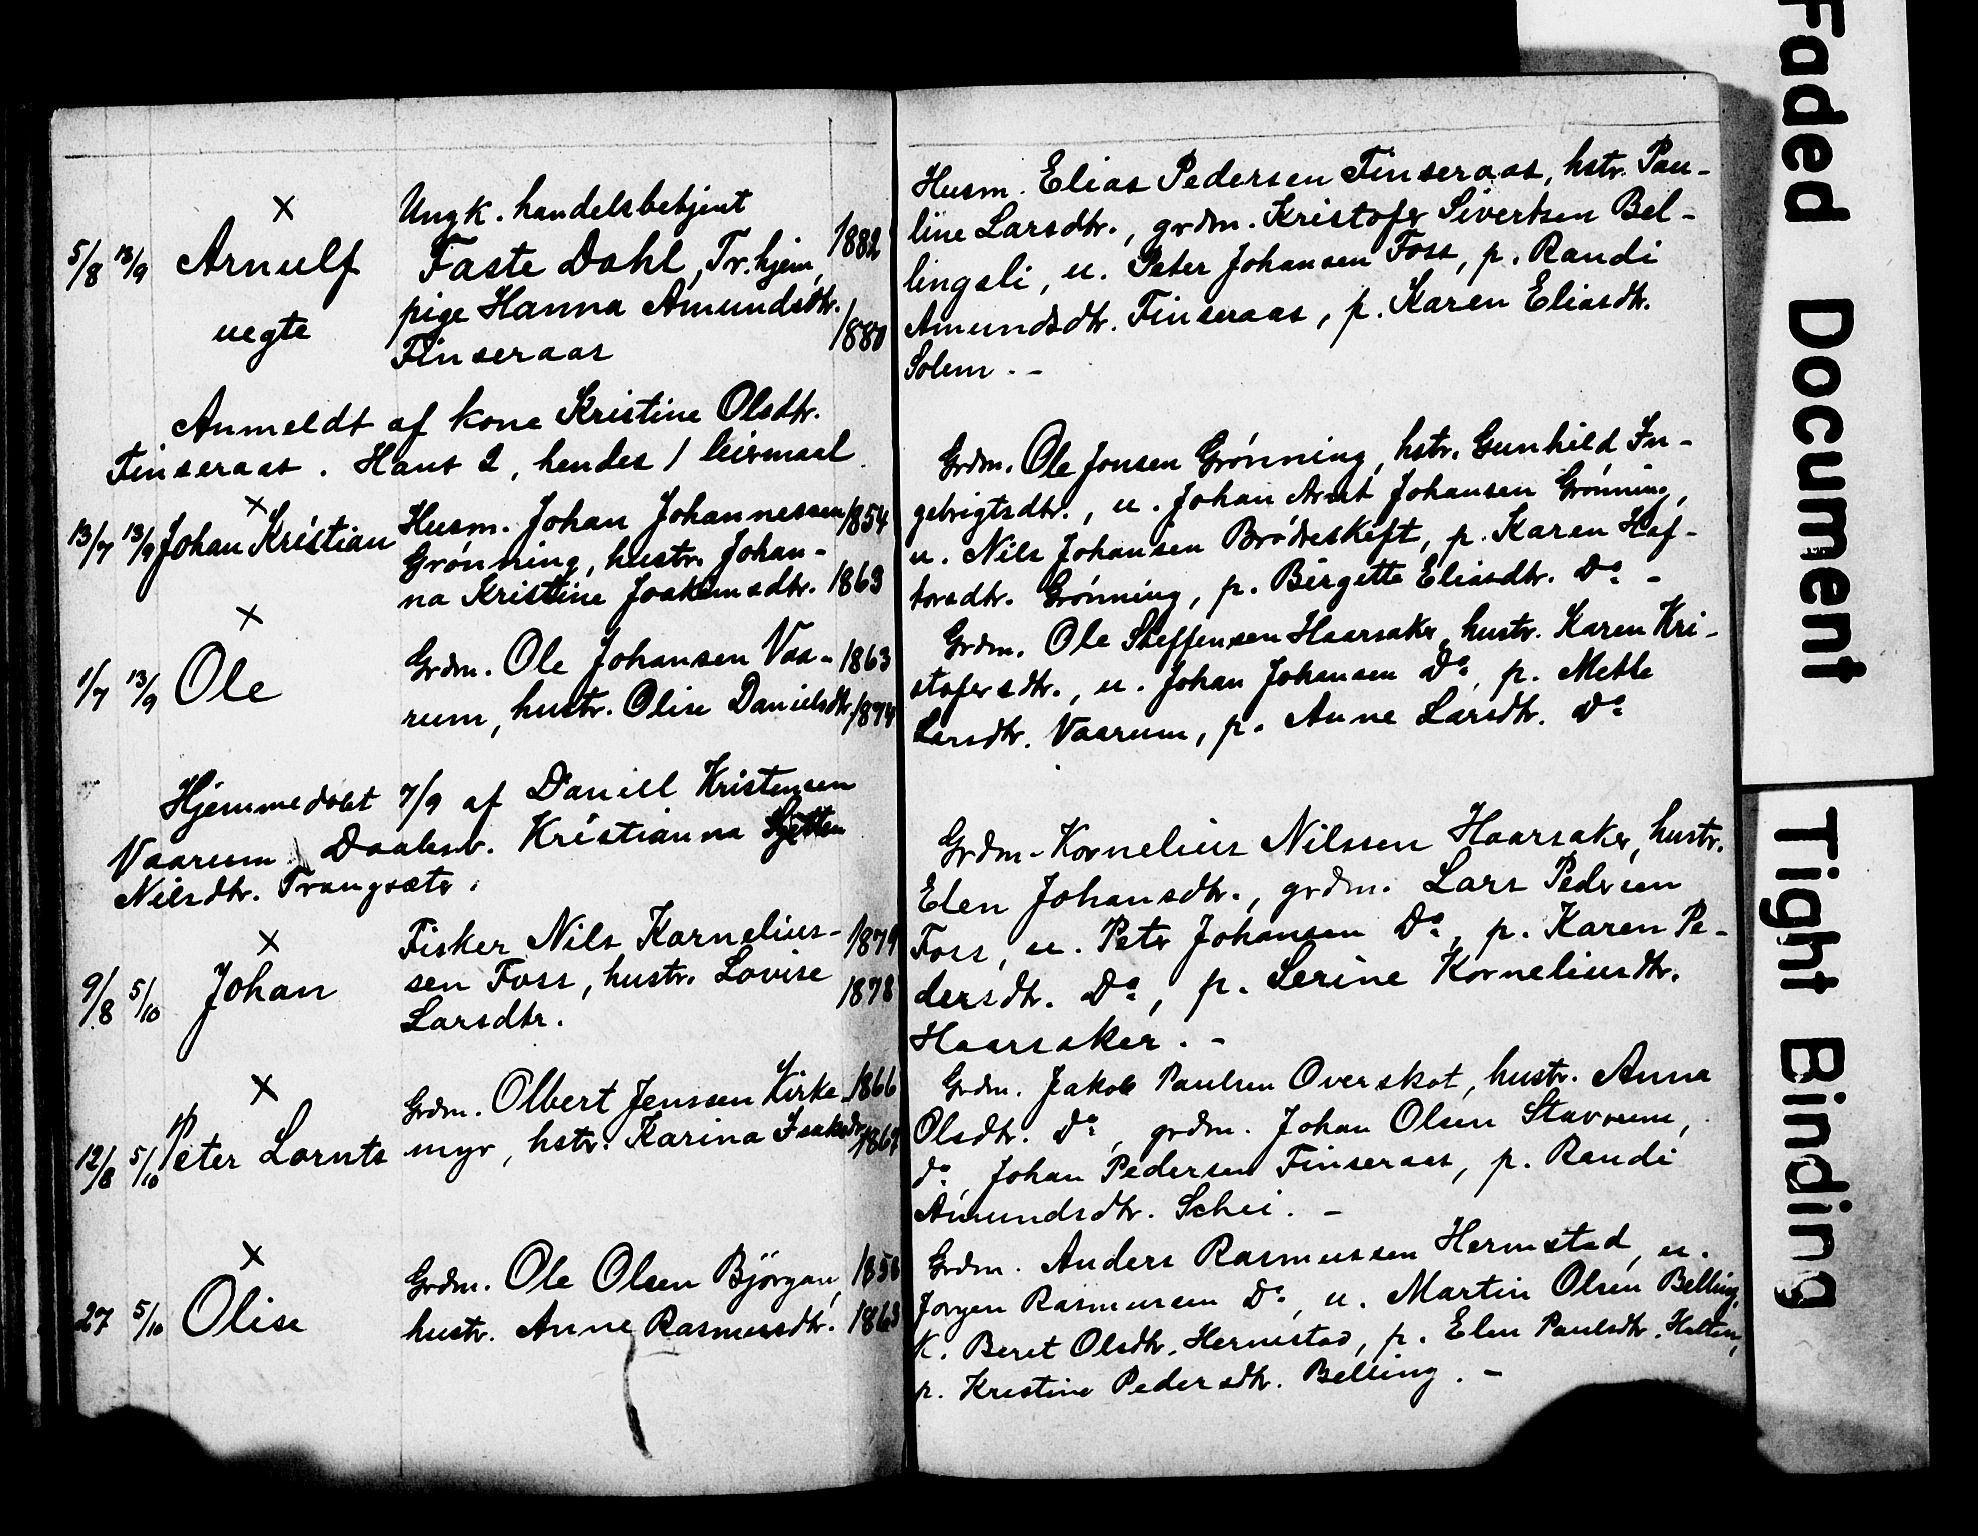 ×
Ungk. handelsbetjent
5/8 13/9 Arnulf Faste Dahl, Tr.hjem, 1882
uegte pige Hanna Amundsdtr. 1880
Finseraas
Anmeldt af kone Kristine Olsdtr.
Finseraas. Hans 2, hendes 1 leiermaal.
×
13/7 13/9 Johan Kristian Husm. Johan Johannessen 1854
Grönning, hustr. Johan-
na Kristine Joakimsdtr. 1863
×
1/7 13/9 Ole Grdm. Ole Johansen Vaa- 1863
rum, hustr. Olise Danielsdtr. 1874
Hjemmedøbt 7/9 af Daniel Kristensen
Vaarum. Daabsv. Kristianna
Nilsdtr. Trangsæter.
×
Fisker Nils Kornelius- 1879
9/8 5/10 Johan sen Foss, hustr. Lovise 1878
Larsdtr.
×
12/8 5/10 Peter Lornts Grdm. Olbert Jenssen Kirke- 1866
myr, hstr. Karina Isaksdtr. 1869
×
27 5/10 Olise Grdm. Ole Olsen Björgan, 1858
hustr. Anne Rasmusdtr. 1863
Husm. Elias Pedersen Finseraas, hstr. Pau-
line Larsdtr., grdm. Kristofer Sivertsen Bel-
lingsli, u. Peter Johansen Foss, p. Randi
Amundsdtr. Finseraas, p. Karen Eliasdtr.
Solem. -
Grdm. Ole Jonsen Grönning, hstr. Gunhild In-
gebrigtsdtr., u. Johan Arnt Johansen Grönning,
u. Nils Johansen Brödreskift, p. Karen Haf-
torsdtr. Grönning, p. Birgitte Eliasdtr. Do -
Grdm. Ole Steffensen Haarsaker, hustr. Karen Kri-
stofersdtr., u. Johan Johansen Do, p. Mette
Larsdtr. Vaarum, p. Anne Larsdtr. Do
Grdm. Kornelius Nilssen Haarsaker, hustr.
Elen Johansdtr., grdm. Lars Pedersen
Foss, u. Peter Johansen Do, p. Karen Pe-
dersdtr. Do, p. Serine Korneliusdtr.
Haarsaker. -
Grdm. Jakob Paulsen Overskot, hustr. Anna
Olsdtr. Do, grdm. Johan Olsen Stavrum,
do, Johan Pedersen Finseraas, p. Randi
Amundsdtr. Schei. -
Grdm. Anders Rasmussen Hermstad, u.
Jorgen Rasmussen Do, u. Martin Olsen Belling,
K. Beret Olsdtr. Hermstad, p. Elen Paulsdtr. Halten,
p. Kristine Pedersdtr. Belling. -
Faded Document
Tight Binding